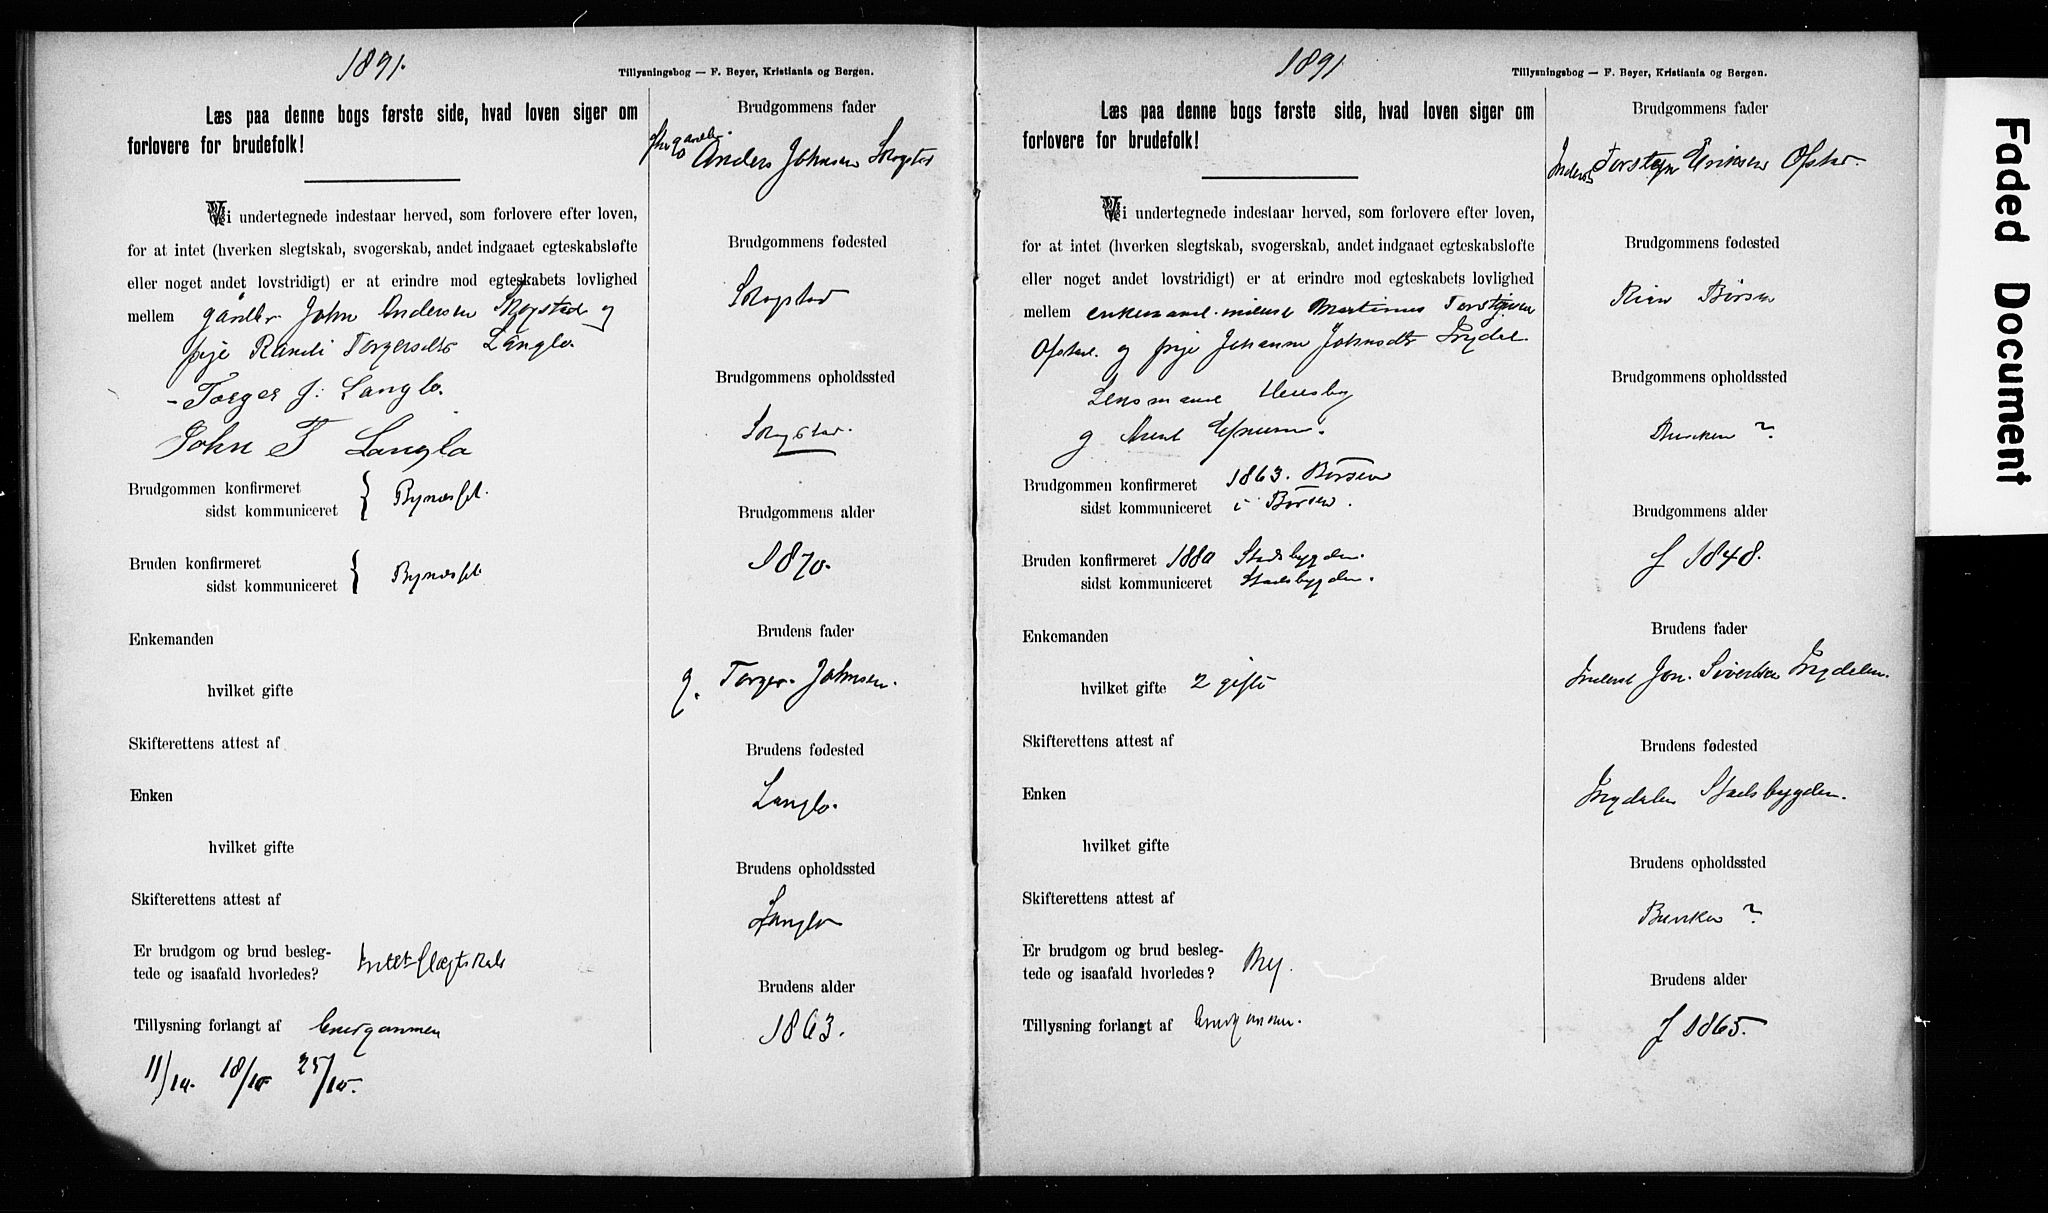 1891.
Tillysningsbog — F. Beyer, Kristiania og Bergen.
Læs paa denne bogs første side, hvad loven siger om
forlovere for brudefolk!
Vi undertegnede indestaar herved, som forlovere efter loven,
for at intet (hverken slegtskab, svogerskab, andet indgaaet egteskabsløfte
eller noget andet lovstridigt) er at erindre mod egteskabets lovlighed
mellem gårdbr John Andersen Skogstad og
pige Randi Torgersdtr Langlo.
- Torger J: Langlo.
John T Langlo
Brudgommen konfirmeret
sidst kommuniceret } Bynæsset.
Bruden konfirmeret
sidst kommuniceret { Bynæsset
Enkemanden
hvilket gifte
Skifterettens attest af
Enken
hvilket gifte
Skifterettens attest af
Er brudgom og brud besleg-
tede og isaafald hvorledes? Intet Slægtskab
Tillysning forlangt af
11/10. 18/10 25/10.
Brudgommens fader
Anders Johnsen Skogstad
Brudgommens fødested
Skogstad
Brudgommens opholdssted
Skogstad.
Brudgommens alder
1870.
Brudens fader
g. Torger Johnsen.
Brudens fødested
Langlo.
Brudens opholdssted
Langlo
Brudens alder
1863.
1891
Tillysningsbog — F. Beyer, Kristiania og Bergen.
Læs paa denne bogs første side, hvad loven siger om
forlovere for brudefolk!
Vi undertegnede indestaar herved, som forlovere efter loven,
for at intet (hverken slegtskab, svogerskab, andet indgaaet egteskabsløfte
eller noget andet lovstridigt) er at erindre mod egteskabets lovlighed
mellem enkemand. inderst Martinus Torstensen
Ofstad. og pige Johanne Johnsdtr Ingdal.
Lensmand
og
Brudgommen konfirmeret 1863. Børsen
sidst kommuniceret i Børsen.
Bruden konfirmeret 1880 Stadsbygden.
sidst kommuniceret Stadsbygden.
Enkemanden
hvilket gifte 2 gifte
Skifterettens attest af
Enken
hvilket gifte
Skifterettens attest af
Er brudgom og brud besleg-
tede og isaafald hvorledes? Nej.
Tillysning forlangt af
Brudgommens fader
Inderst Torsten Eriksen Ofstad.
Brudgommens fødested
Børsen
Brudgommens opholdssted
?
Brudgommens alder
f 1848.
Brudens fader
Inderst Jon. Sivertsen Ingdalen.
Brudens fødested
Ingdalen Stadsbygden.
Brudens opholdssted
?
Brudens alder
f 1865.
Faded Document